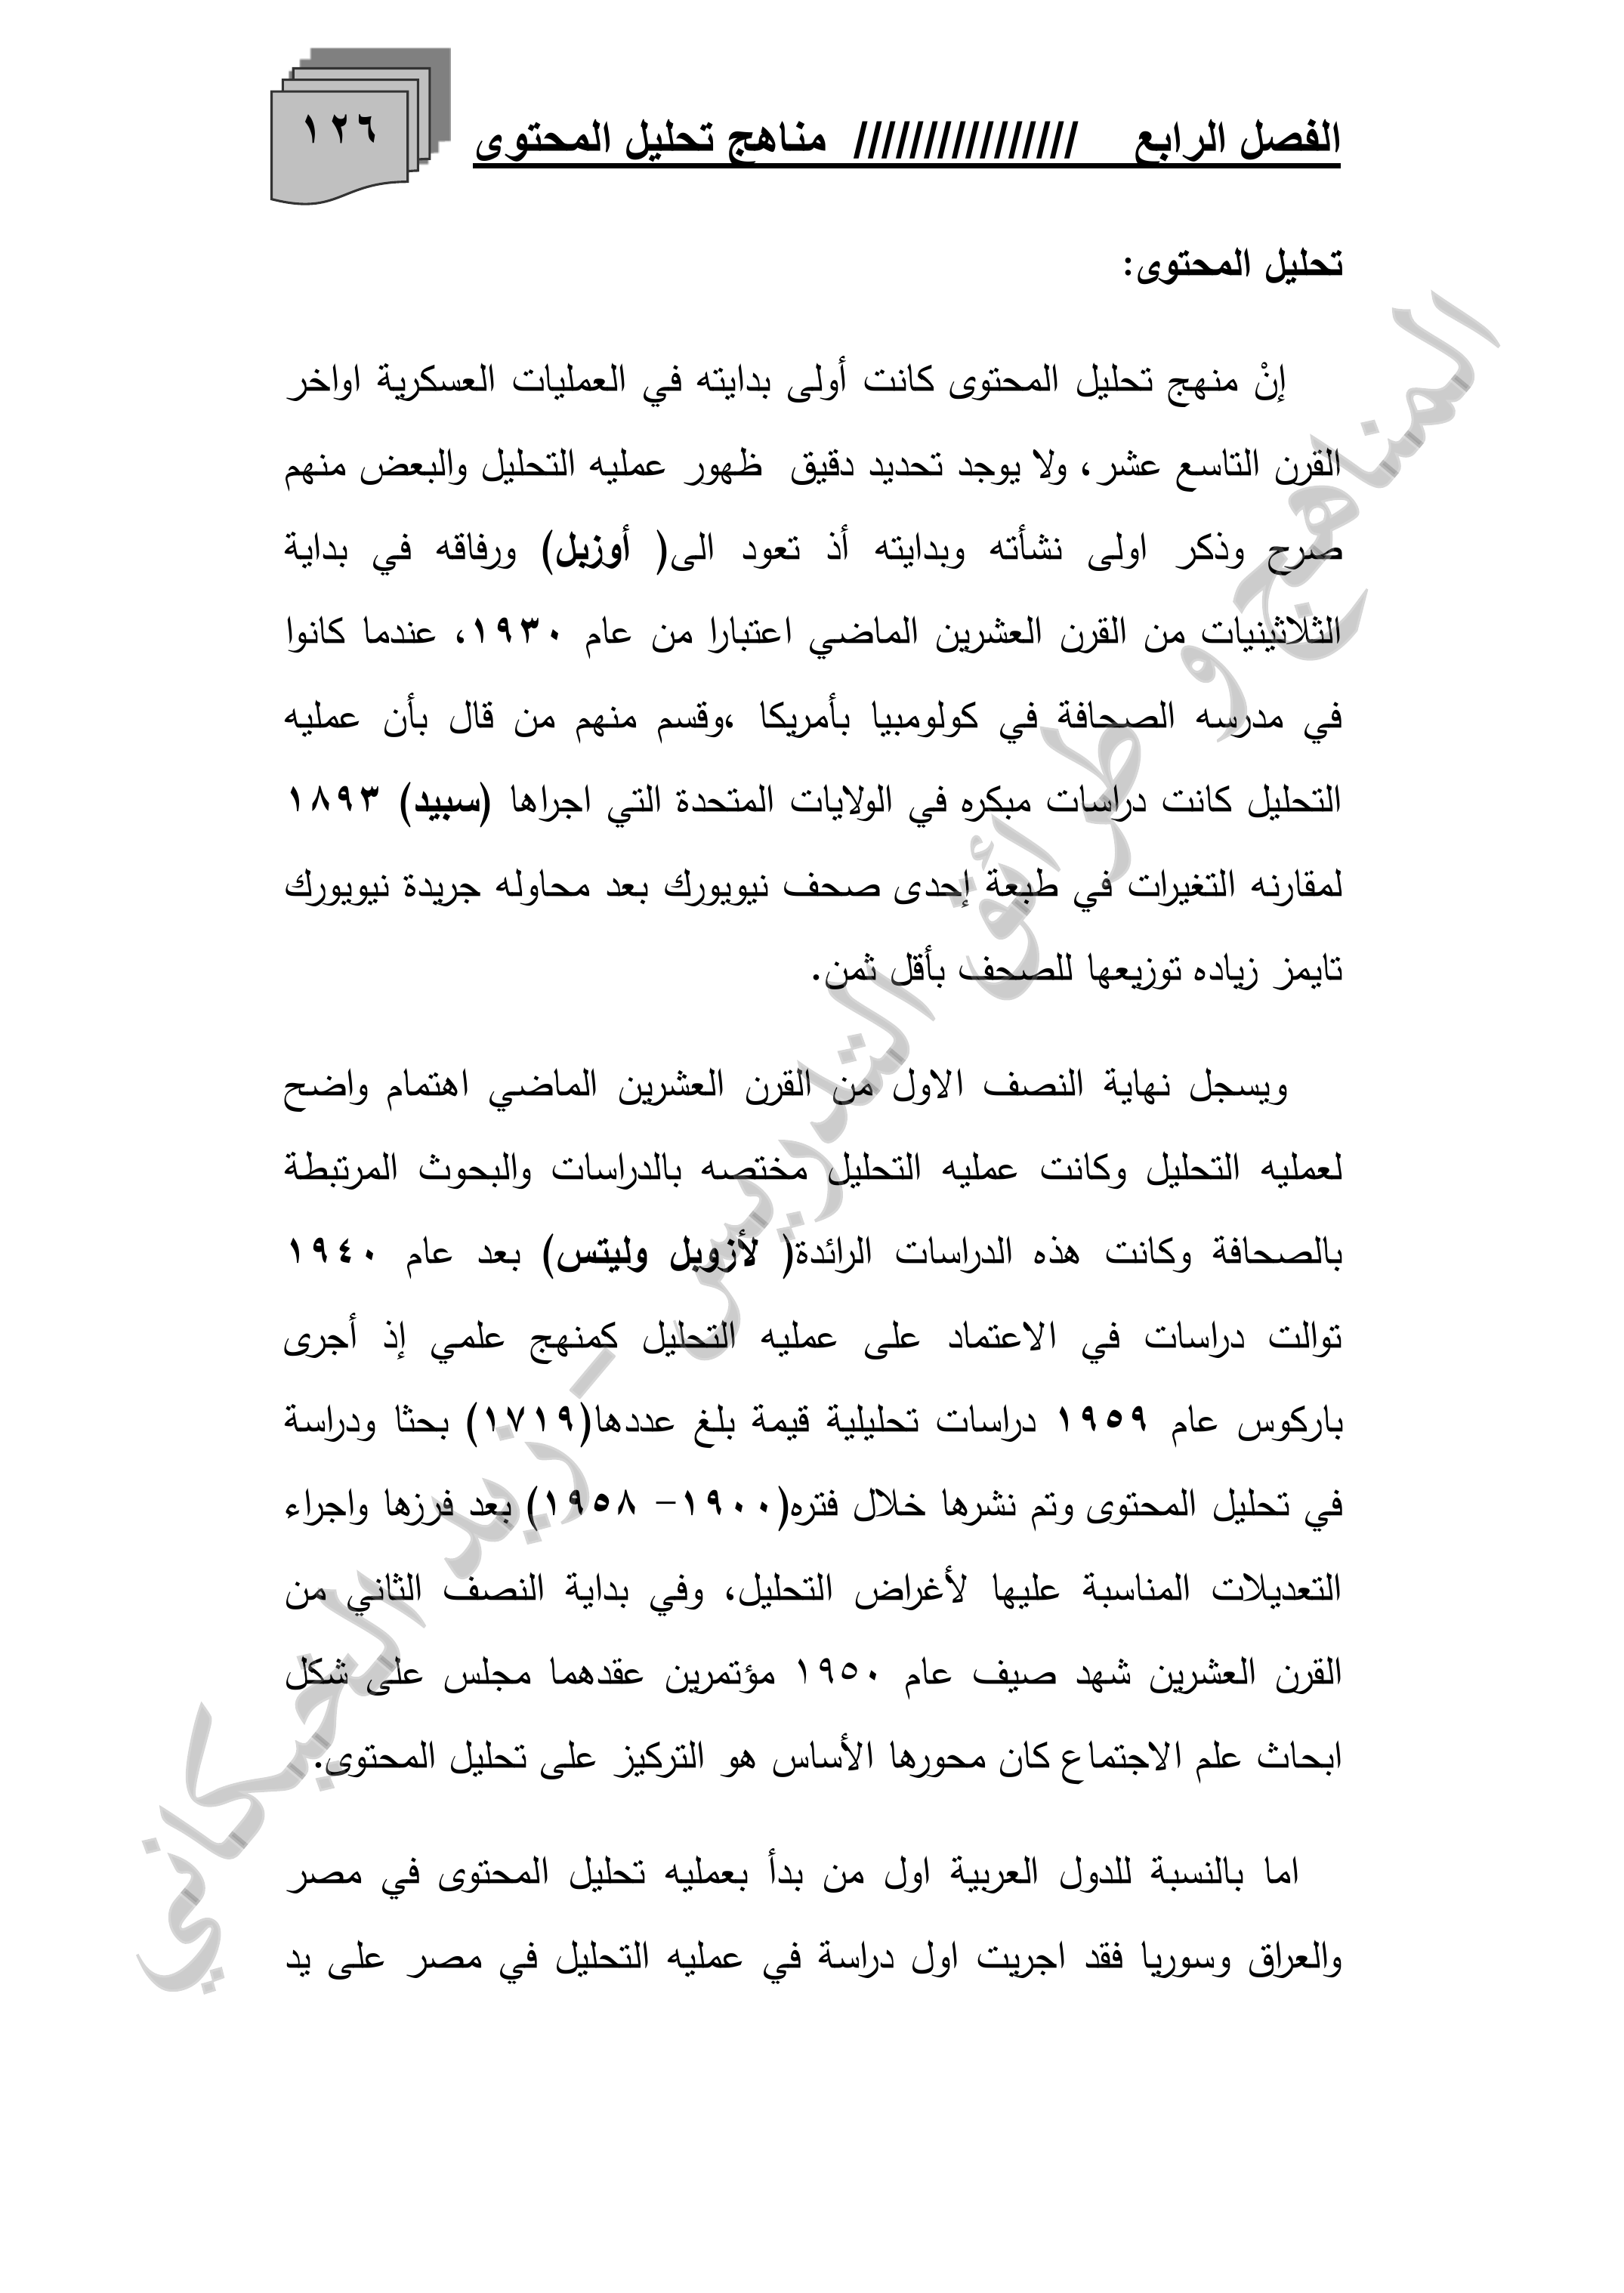 الفصل الرابع //////////////// مناهج تحليل المحتوى
١٢٦
تحليل المحتوى:
إنْ منهج تحليل المحتوى كانت أولى بدايته في العمليات العسكرية اواخر
القرن التاسع عشر، ولا يوجد تحديد دقيق ظهور عمليه التحليل والبعض منهم
صرح وذكر اولى نشأته وبدايته أذ تعود الى( أوزبل) ورفاقه في بداية
الثلاثينيات من القرن العشرين الماضي اعتبارا من عام ١٩٣٠، عندما كانوا
في مدرسه الصحافة في كولومبيا بأمريكا ،وقسم منهم من قال بأن عمليه
التحليل كانت دراسات مبكره في الولايات المتحدة التي اجراها (سبيد) ١٨٩٣
لمقارنه التغيرات في طبعة إحدى صحف نيويورك بعد محاوله جريدة نيويورك
تايمز زياده توزيعها للصحف بأقل ثمن.
ويسجل نهاية النصف الاول من القرن العشرين الماضي اهتمام واضح
لعمليه التحليل وكانت عمليه التحليل مختصه بالدراسات والبحوث المرتبطة
بالصحافة وكانت هذه الدراسات الرائدة( لأزوبل وليتس) بعد عام ١٩٤٠
توالت دراسات في الاعتماد على عمليه التحليل كمنهج علمي إذ أجرى
باركوس عام ١٩٥٩ دراسات تحليلية قيمة بلغ عددها(١٧١٩) بحثا ودراسة
في تحليل المحتوى وتم نشرها خلال فتره(١٩٠٠- ١٩٥٨) بعد فرزها واجراء
التعديلات المناسبة عليها لأغراض التحليل، وفي بداية النصف الثاني من
القرن العشرين شهد صيف عام ١٩٥٠ مؤتمرين عقدهما مجلس على شكل
ابحاث علم الاجتماع كان محورها الأساس هو التركيز على تحليل المحتوى.
اما بالنسبة للدول العربية اول من بدأ بعمليه تحليل المحتوى في مصر
والعراق وسوريا فقد اجريت اول دراسة في عمليه التحليل في مصر على يد
المناهج و طرائق التدريس - زيد الخيكاني